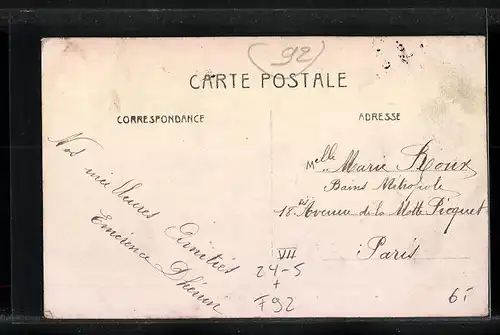 (92)
CARTE POSTALE
CORRESPONDANCE
ADRESSE
Nos meilleures Amitiés
Melle Marie Roux
Bains Métropole
18 bis Avenue de la Motte Picquet
Paris
VII
24-5
+
F92
6